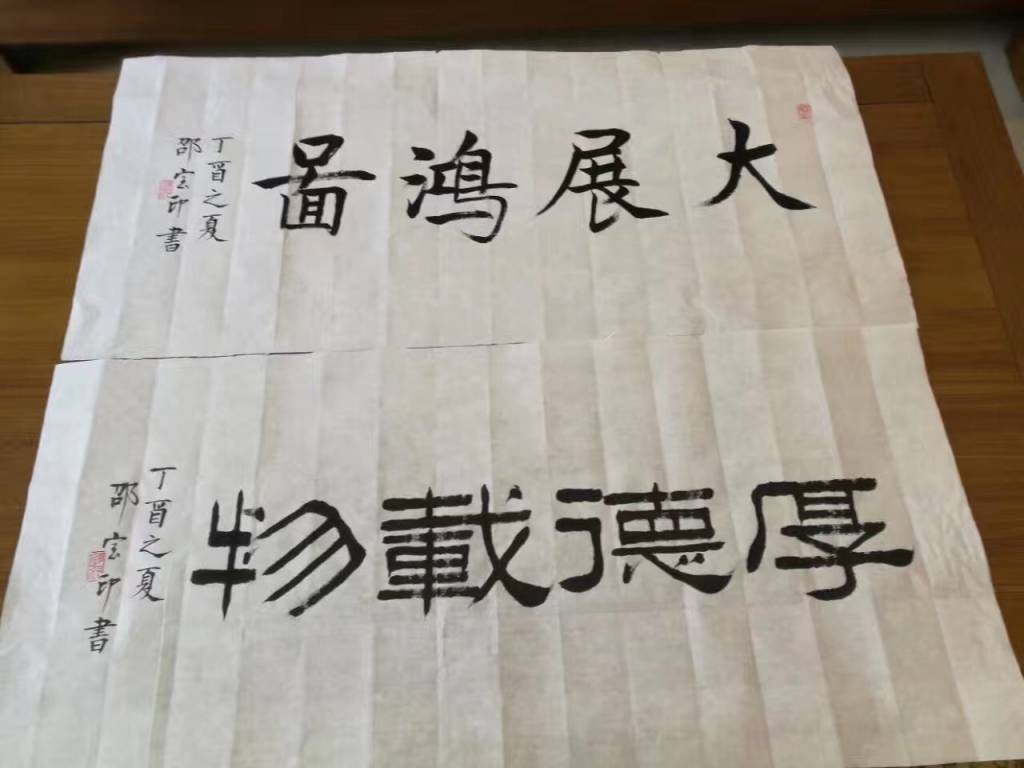 大展鸿啚
丁酉之夏
邵宏印書
厚德載物
丁酉之夏
邵宏印書